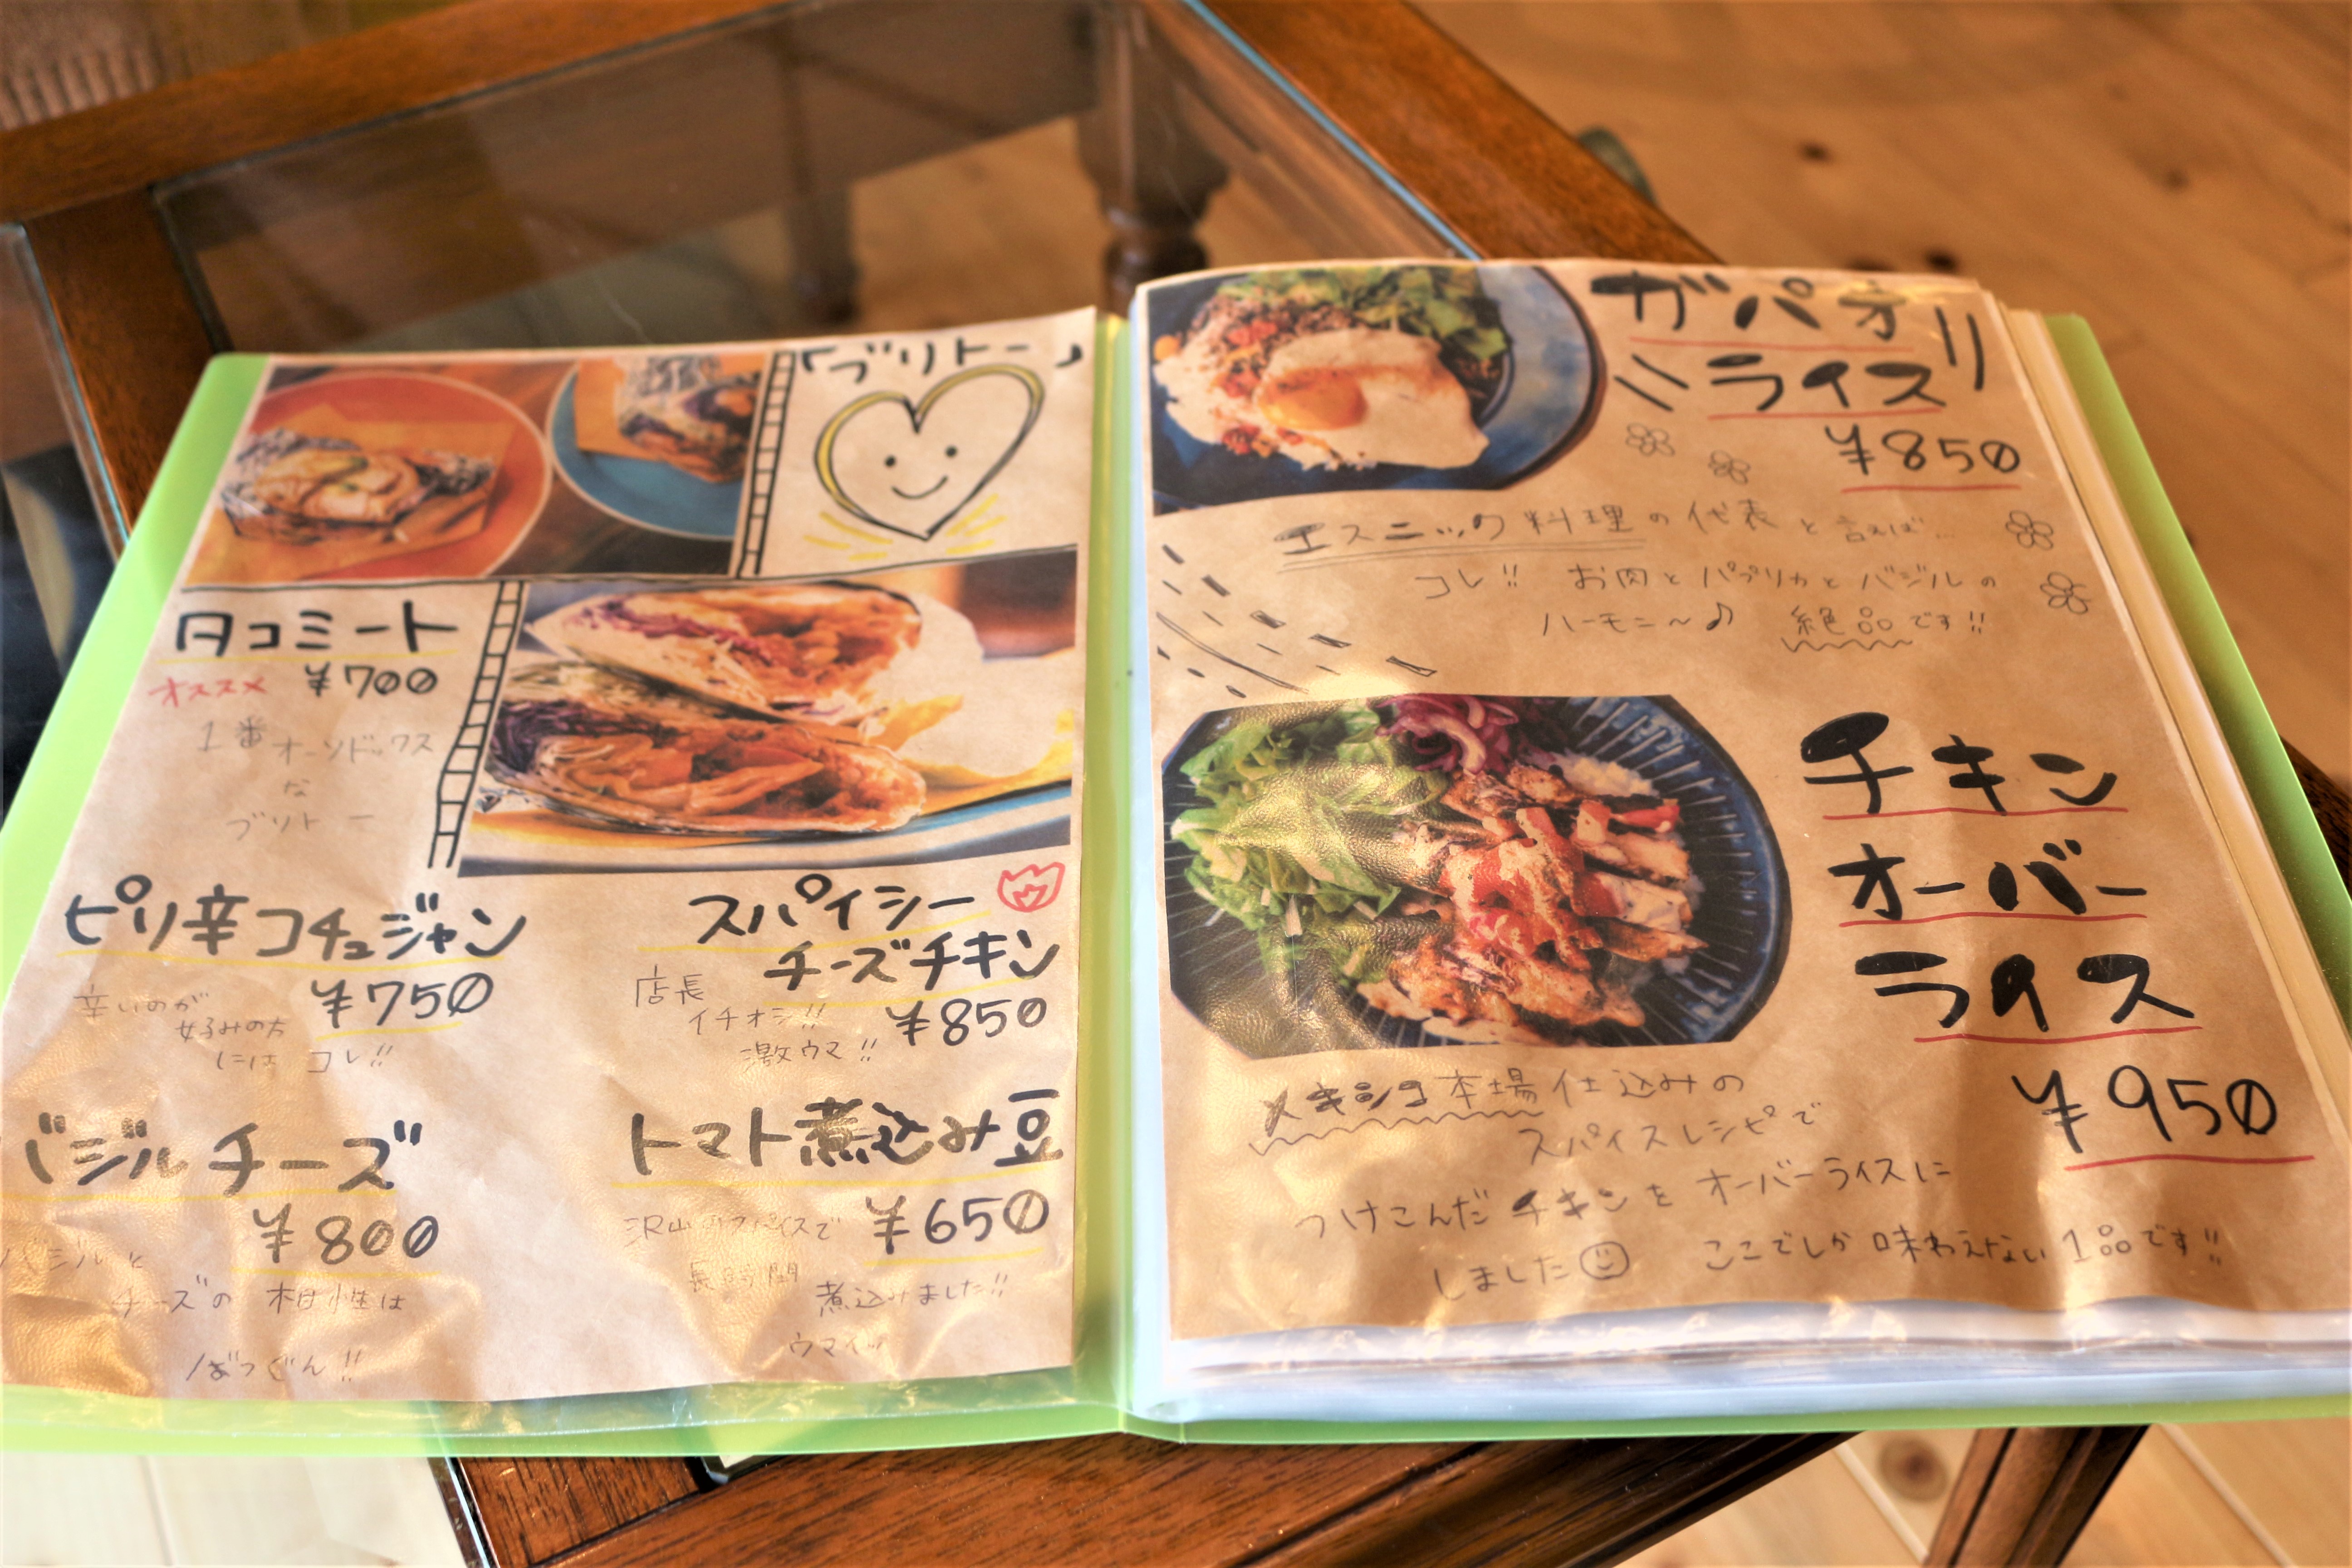 「ブリトー」
タコミート
オススメ ¥700
1番オーソドックス
な
ブリトー
ピリ辛コチュジャン
¥750
辛いのが
好みの方
には コレ!!
スパイシー
チーズチキン
¥850
店長
イチオシ!!
激ウマ!!
バジルチーズ
¥800
バジルと
チーズの 相性は
ばつぐん!!
トマト煮込み豆
¥650
沢山のスパイスで
長時間
煮込みました!!
ウマイッ
ガパオ
ライス
¥850
エスニック料理の代表と言えば…
コレ!! お肉とパプリカとバジルの
ハーモニ〜♪ 絶品です!!
チキン
オーバー
ライス
¥950
メキシコ本場仕込みの
スパイスレシピで
つけこんだチキンをオーバーライスに
しました ここでしか味わえない1品です!!